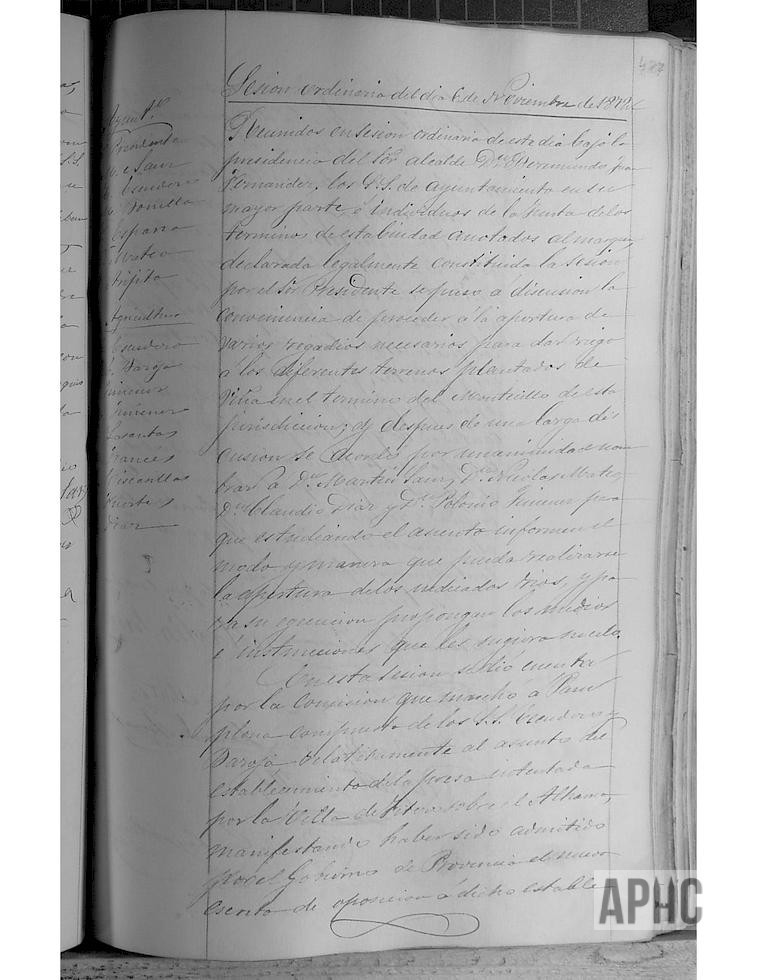 427
Sesion ordinaria del dia 6 de Noviembre de 1872
Ayunt.to
Presidente
Sanz
Escudero
Bonilla
España
Mateo
Agricultura
Escudero
Baroja
Jimenez
Jimenez
Lasantas
Frances
Fuertes
Diaz
Reunidos en sesion ordinaria de este dia bajo la
presidencia del Sor. alcalde Dn. Bermundo
Fernandez, los S.S. de ayuntamiento en su
mayor parte é individuos de la Junta de los
terminos de esta Ciudad anotados al margen
declarada legalmente constituida la sesion
por el Sor Presidente se puso á discusion la
conveniencia de proceder á la apertura de
varios regadios necesarios para dar riego
á los diferentes terrenos plantados de
Viña en el termino del Montecillo de esta
jurisdiccion; y despues de una larga dis
cusion se acordó por unanimidad nom
brar á Dn. Martin Sanz, Dn. Nicolas Mateo,
Dn. Claudio Diaz y Dn. Polonio Jimenez para
que estudiando el asunto informen el
modo y manera que pueda realizarse
la apertura de los indicados rios, y pa
ra su ejecucion propongan los medios
é instrucciones que les sugiera su celo.
En esta sesion se dió cuenta
por la Comision que marcho á Pam
plona compuesta de los S.S. Escudero y
Baroja relativamente al asunto del
establecimiento de la presa intentada
por la Villa de Fitero sobre el Alhama,
manifestando haber sido admitido
por el Gobierno de Provincia el nuevo
escrito de oposicion á dicho estable
APHC